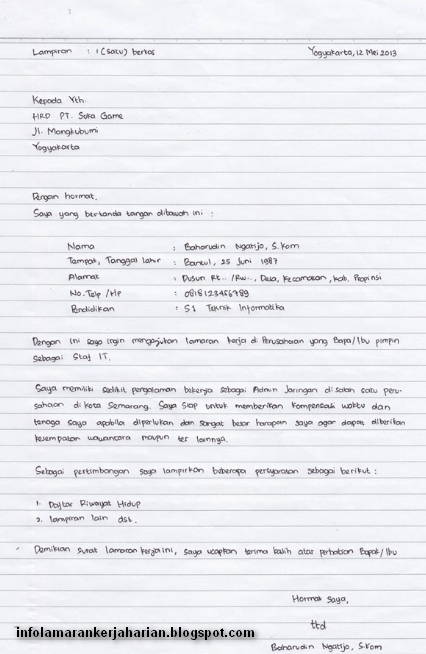 Lampiran : 1 (satu) berkas Yogyakarta, 12 Mei 2013
Kepada Yth.
HRD PT. Soka Game
Jl. Mangkubumi
Yogyakarta
Dengan hormat,
Saya yang bertanda tangan dibawah ini :
Nama : Baharudin Ngatijo, S.Kom
Tempat, Tanggal lahir : Bantul, 25 Juni 1987
Alamat : Dusun Rt.. /Rw.., Desa, Kecamatan, Kab. Propinsi
No. Telp /Hp : 0818123456789
Pendidikan : S1 Teknik Informatika
Dengan ini saya ingin mengajukan lamaran kerja di Perusahaan yang Bapa/Ibu pimpin
sebagai Staf IT.
Saya memiliki sedikit pengalaman bekerja sebagai Admin Jaringan di salah satu peru-
sahaan di kota Semarang. Saya siap untuk memberikan kompensasi waktu dan
tenaga saya apabila diperlukan dan sangat besar harapan saya agar dapat diberikan
kesempatan wawancara maupun tes lainnya.
Sebagai pertimbangan saya lampirkan beberapa persyaratan sebagai berikut :
1. Daftar Riwayat Hidup
2. lampiran lain dst.
Demikian surat lamaran kerja ini, saya ucapkan terima kasih atas perhatian Bapak/Ibu
Hormat Saya,
ttd
Baharudin Ngatijo, S.Kom
infolamarankerjaharian.blogspot.com